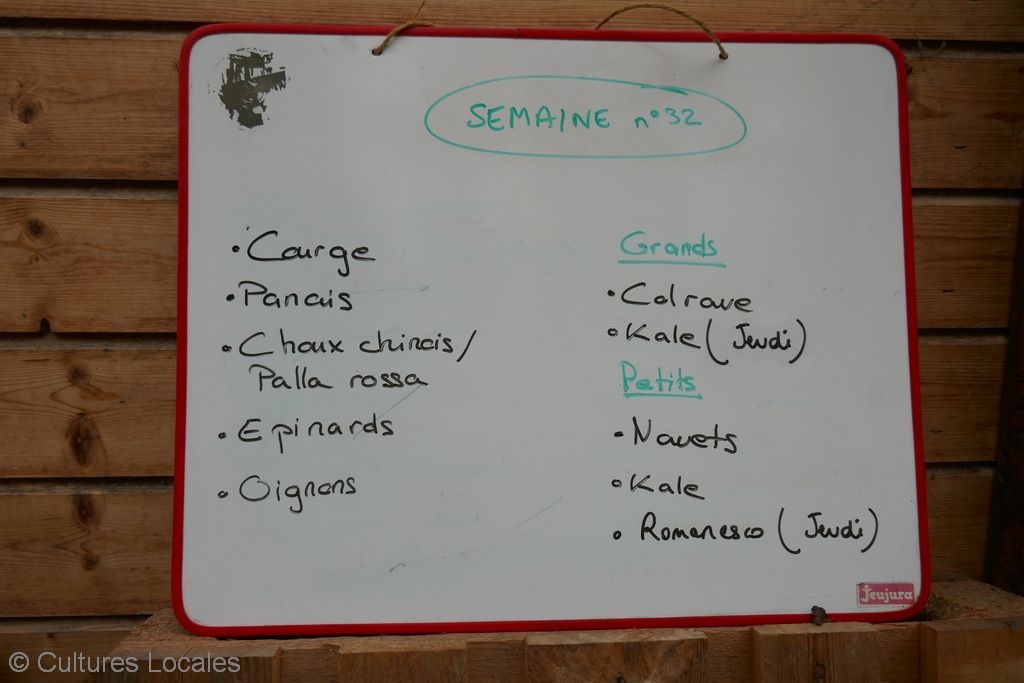 SEMAINE n°32
• Courge
• Panais
• Choux chinois /
Palla rossa
• Epinards
• Oignons
Grands
• Colrave
• Kale (Jeudi)
Petits
• Navets
• Kale
• Romanesco (Jeudi)
Jeujura
© Cultures Locales